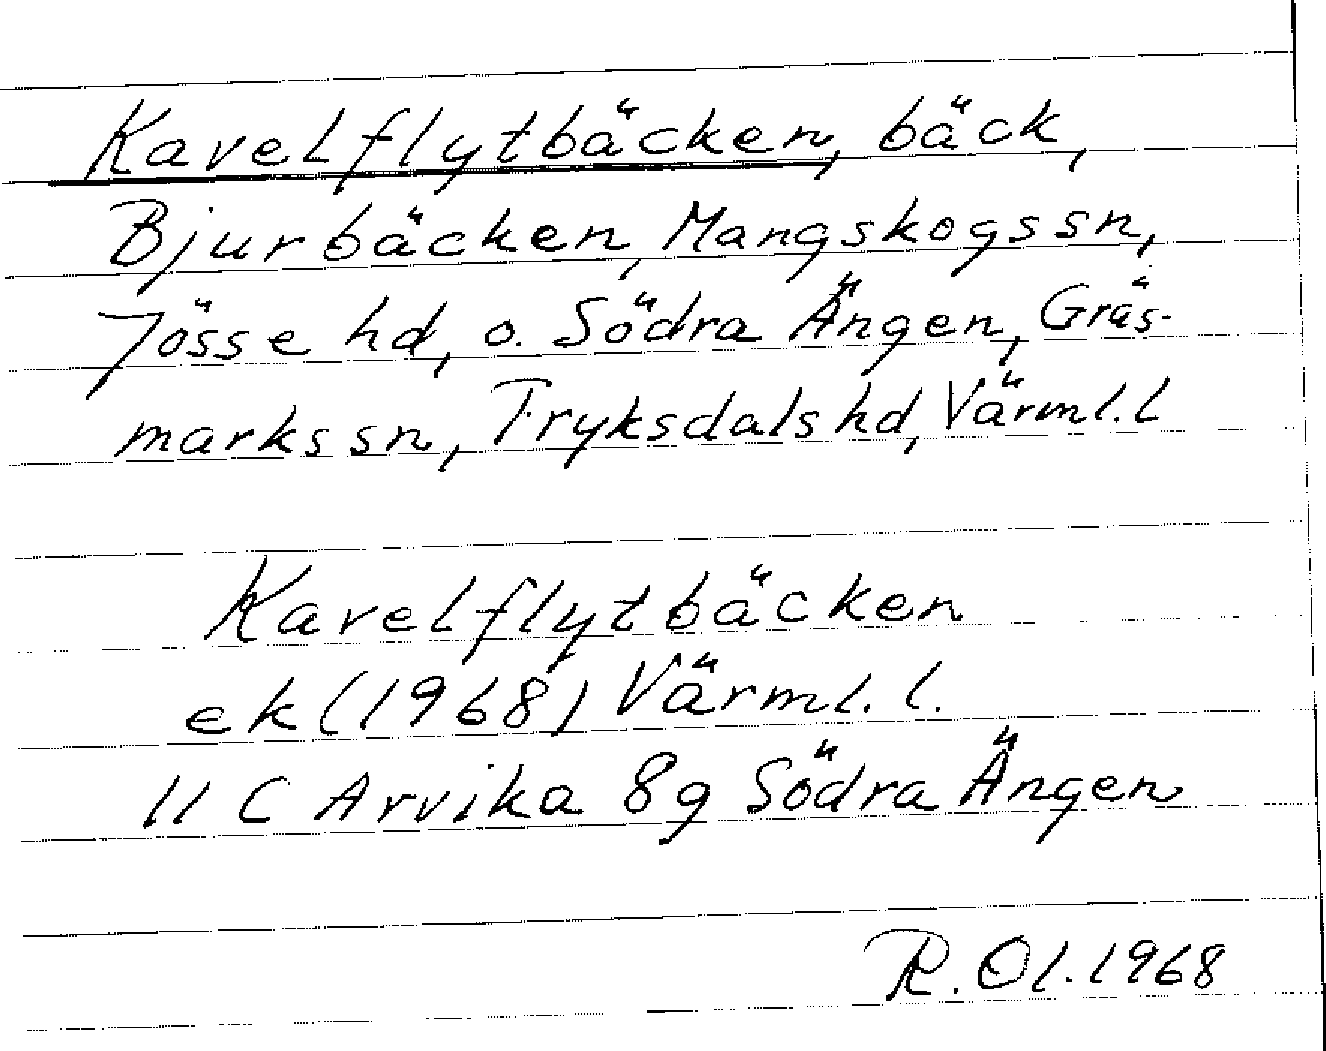 Kavelflytbäcken, bäck,
Bjurbäcken, Mangskogs sn,
Jösse hd, o. Södra Ängen, Gräs-
marks sn, Fryksdals hd, Värml. l
Kavelflytbäcken
ek (1968) Värml. l.
11 C Arvika 8g Södra Ängen
R. Ol. 1968